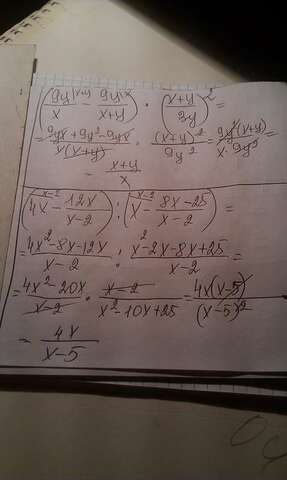 (9y^(x+y)/x - 9y^(x)/(x+y)) · ((x+y)/3y)^2 =
= (9yx + 9y^2 - 9yx)/(x(x+y)) · (x+y)^2/9y^2 = 9y^2(x+y)/(x · 9y^2)
= (x+y)/x
(4x^(x-2) - 12x/(x-2)) : (x^(x-2) - (8x-25)/(x-2)) =
= (4x^2-8x-12x)/(x-2) : (x^2-2x-8x+25)/(x-2) =
= (4x^2-20x)/(x-2) · (x-2)/(x^2-10x+25) = 4x(x-5)/(x-5)^2
= 4x/(x-5)